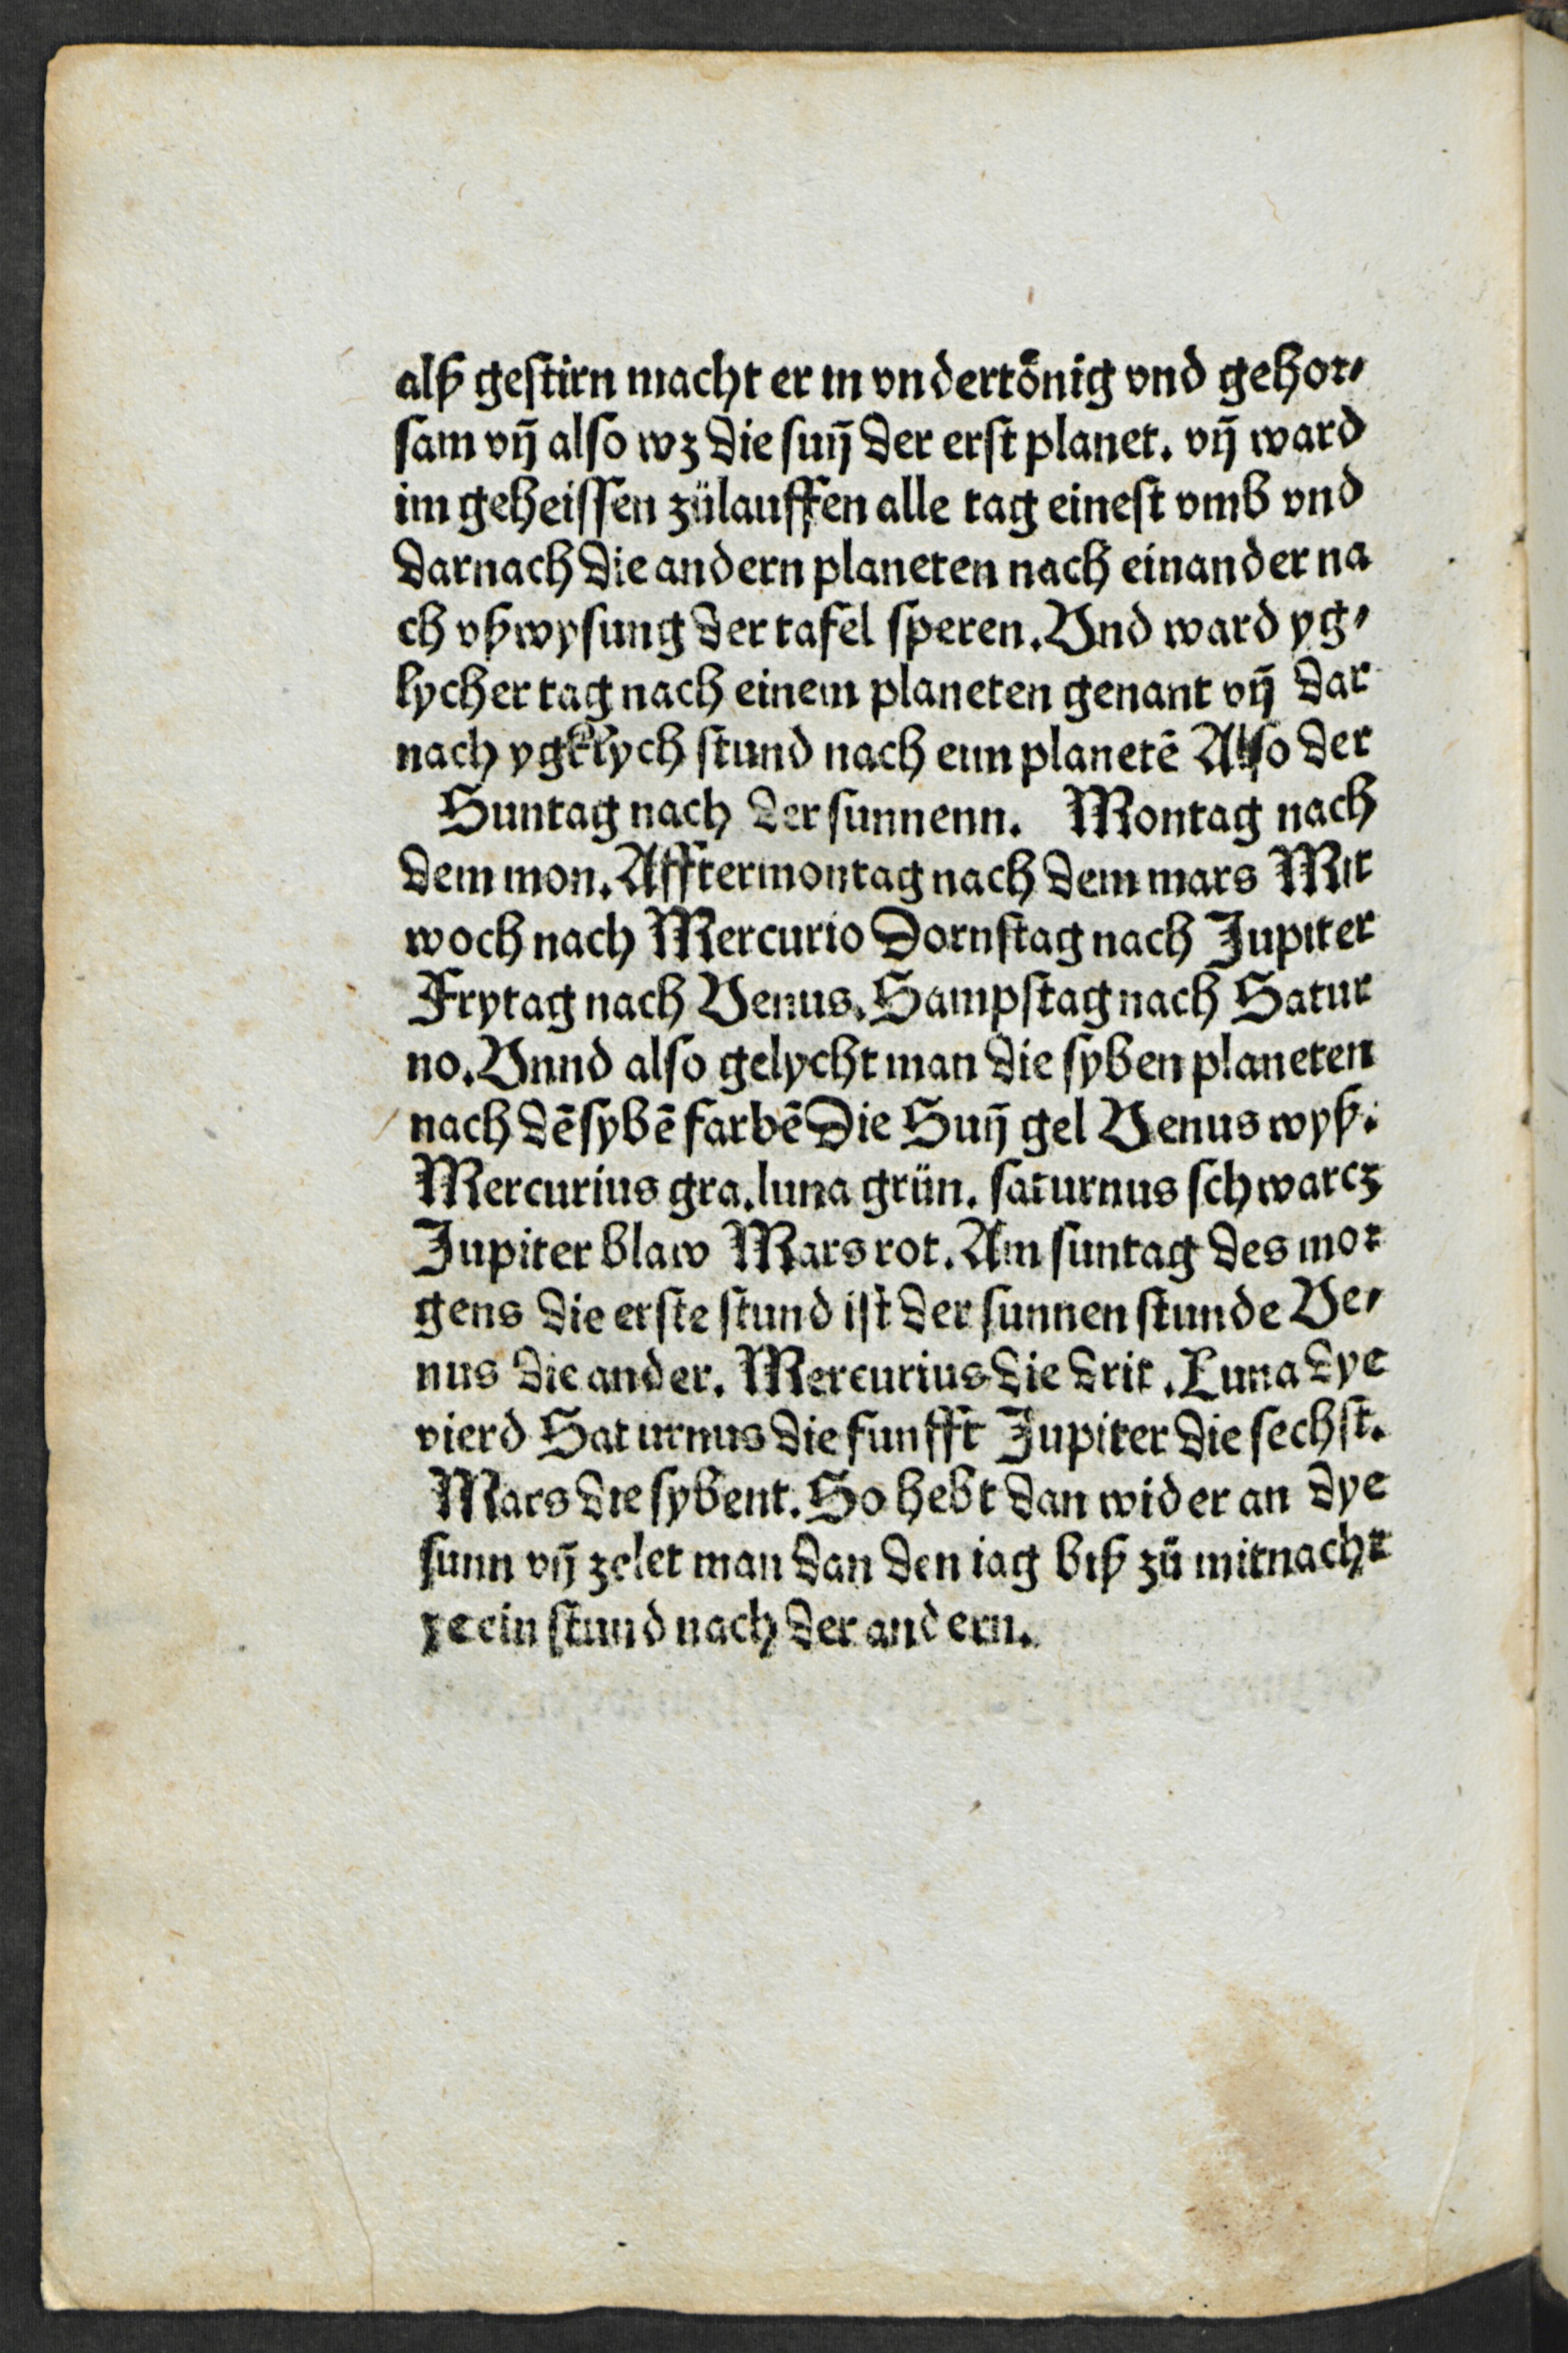 alß gestirn macht er in vndertönig vnd gehor⸗
sam vn̄ also wz die sun̄ der erst planet. vn̄ ward
im geheissen zülauffen alle tag einest vmb vnd
darnach die andern planeten nach einander na
ch vßwysung der tafel speren. Vnd ward yg⸗
lycher tag nach einem planeten genant vn̄ dar
nach ygklych stund nach eim planetē Also der
Suntag nach der sunnenn. Montag nach
dem mon. Afftermontag nach dem mars Mit
woch nach Mercurio Dornstag nach Jupiter
Frytag nach Venus. Sampstag nach Satur
no. Vnnd also gelycht man die syben planeten
nach dē sybē farbē Die Sun̄ gel Venus wyß.
Mercurius gra. luna grün. saturnus schwarcz
Jupiter blaw Mars rot. Am suntag des mor
gens die erste stund ist der sunnen stunde Ve⸗
nus die ander. Mercurius die drit. Luna dye
vierd Saturnus die funfft Jupiter die sechst.
Mars die sybent. So hebt dan wider an dye
sunn vn̄ zelet man dan den tag biß zů mitnacht
ye ein stund nach der andern.